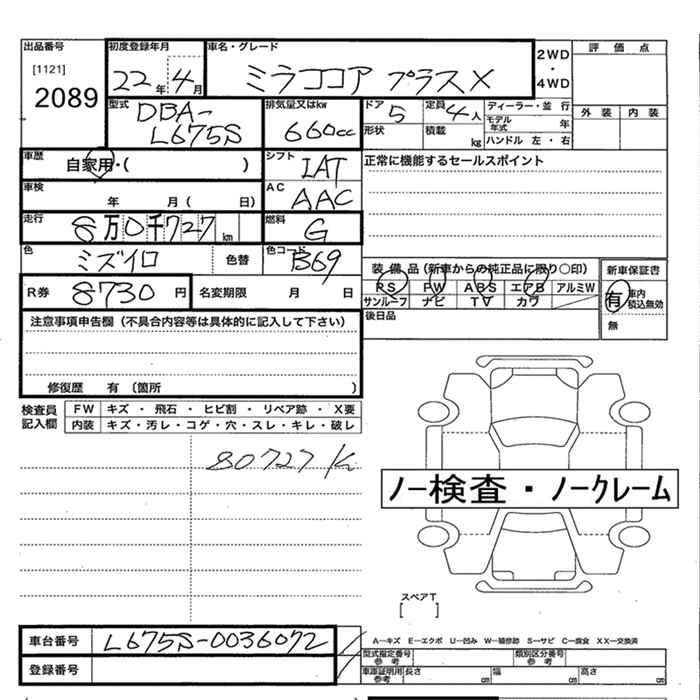 出品番号
[1121]
2089
初度登録年月
22年 4月
車名・グレード
ミラココア プラスX
2WD
・
4WD
評価点
外装 内装
型式
DBA-
L675S
排気量又はkw
660cc
ドア 5
形状
定員 4人
積載 kg
ディーラー・並 行
モデル
年式 年
ハンドル 左・右
車歴
自家用・( )
シフト
IAT
正常に機能するセールスポイント
車検
年 月( 日)
AC
AAC
走行
8万0千727km
燃料
G
色
ミズイロ
色替
色コード
B69
装備品(新車からの純正品に限り○印)
PS PW ABS エアB アルミW
サンルーフ ナビ TV カワ
後日品
新車保証書
有
車内
積込無効
無
R券 8730円
名変期限 月 日
注意事項申告欄(不具合内容等は具体的に記入して下さい)
修復歴 有(箇所 )
検査員
記入欄
FW キズ・飛石・ヒビ割・リペア跡・X要
内装 キズ・汚レ・コゲ・穴・スレ・キレ・破レ
80727K
ノー検査・ノークレーム
スペアT
[ ]
車台番号 L675S-0036072
登録番号
A―キズ E―エクボ U―凹み W―補修跡 S―サビ C―腐食 XX―交換済
型式指定番号
参考
類別区分番号
参考
車庫証明用
参考
長さ cm
幅 cm
高さ cm